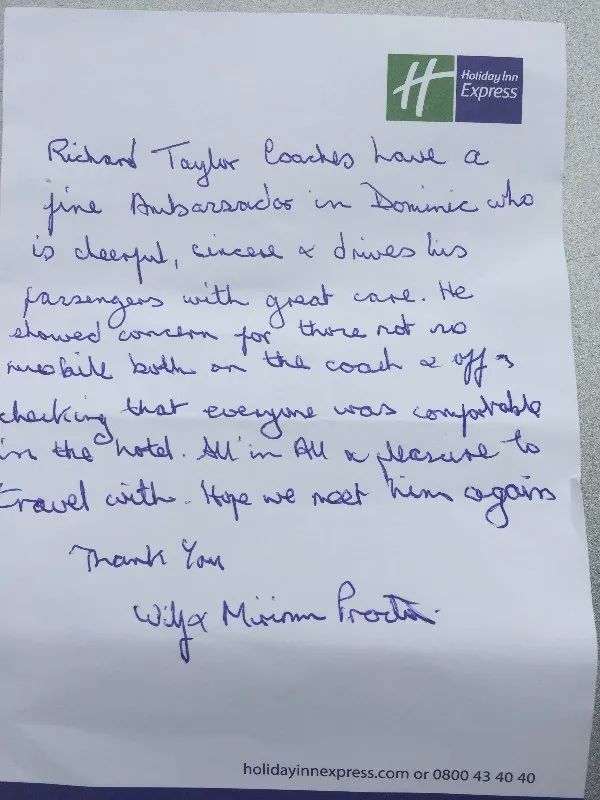 Holiday Inn
Express
Richard Taylor Coaches have a
fine Ambassador in Dominic who
is cheerful, sincere & drives his
passengers with great care. He
showed concern for those not so
mobile both on the coach & off &
checking that everyone was comfortable
in the hotel. All in All a pleasure to
travel with. Hope we meet him again
Thank You
Wilf & Miriam Proctor.
holidayinnexpress.com or 0800 43 40 40